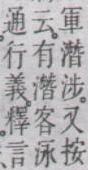 軍潛涉。又按
云。有潛客泳
通行義。釋言